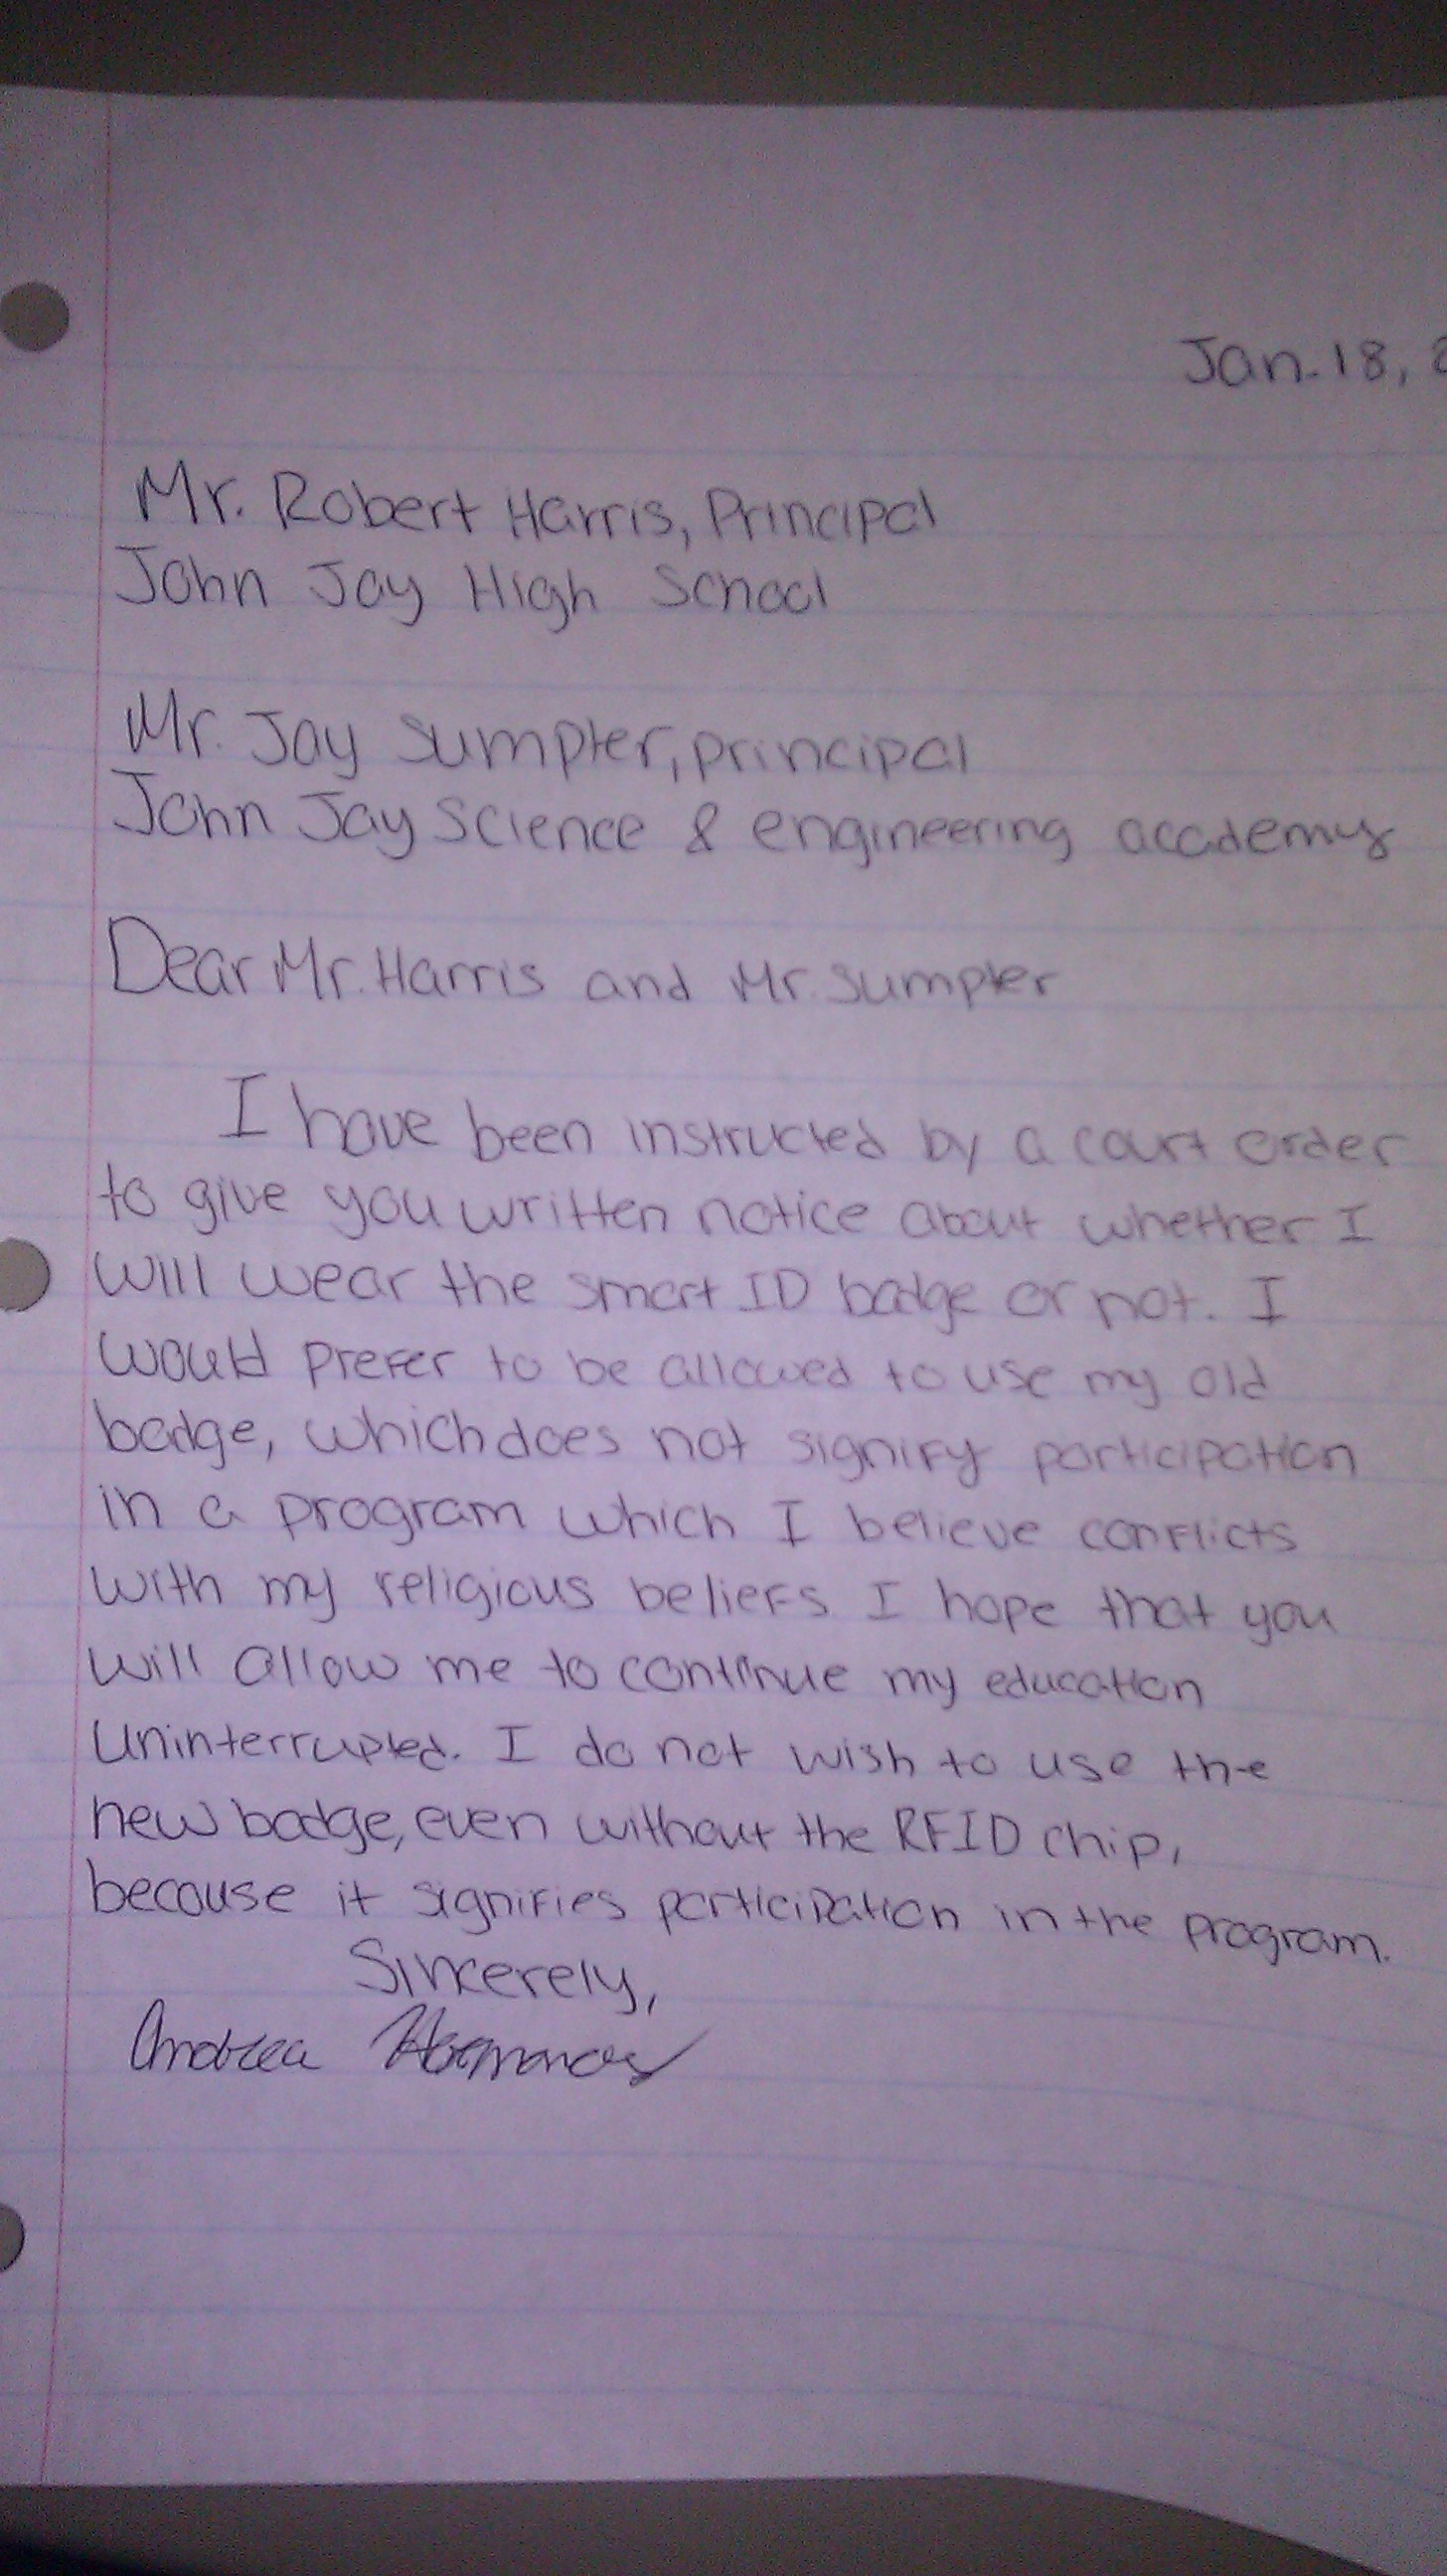 Jan. 18, 2
Mr. Robert Harris, Principal
John Jay High School
Mr. Jay Sumpter, principal
John Jay Science & engineering academy
Dear Mr. Harris and Mr. Sumpter
I have been instructed by a court order
to give you written notice about whether I
will wear the smart ID badge or not. I
would prefer to be allowed to use my old
badge, which does not signify participation
in a program which I believe conflicts
with my religious beliefs. I hope that you
will allow me to continue my education
uninterrupted. I do not wish to use the
new badge, even without the RFID chip,
because it signifies participation in the program.
Sincerely,
Andrea